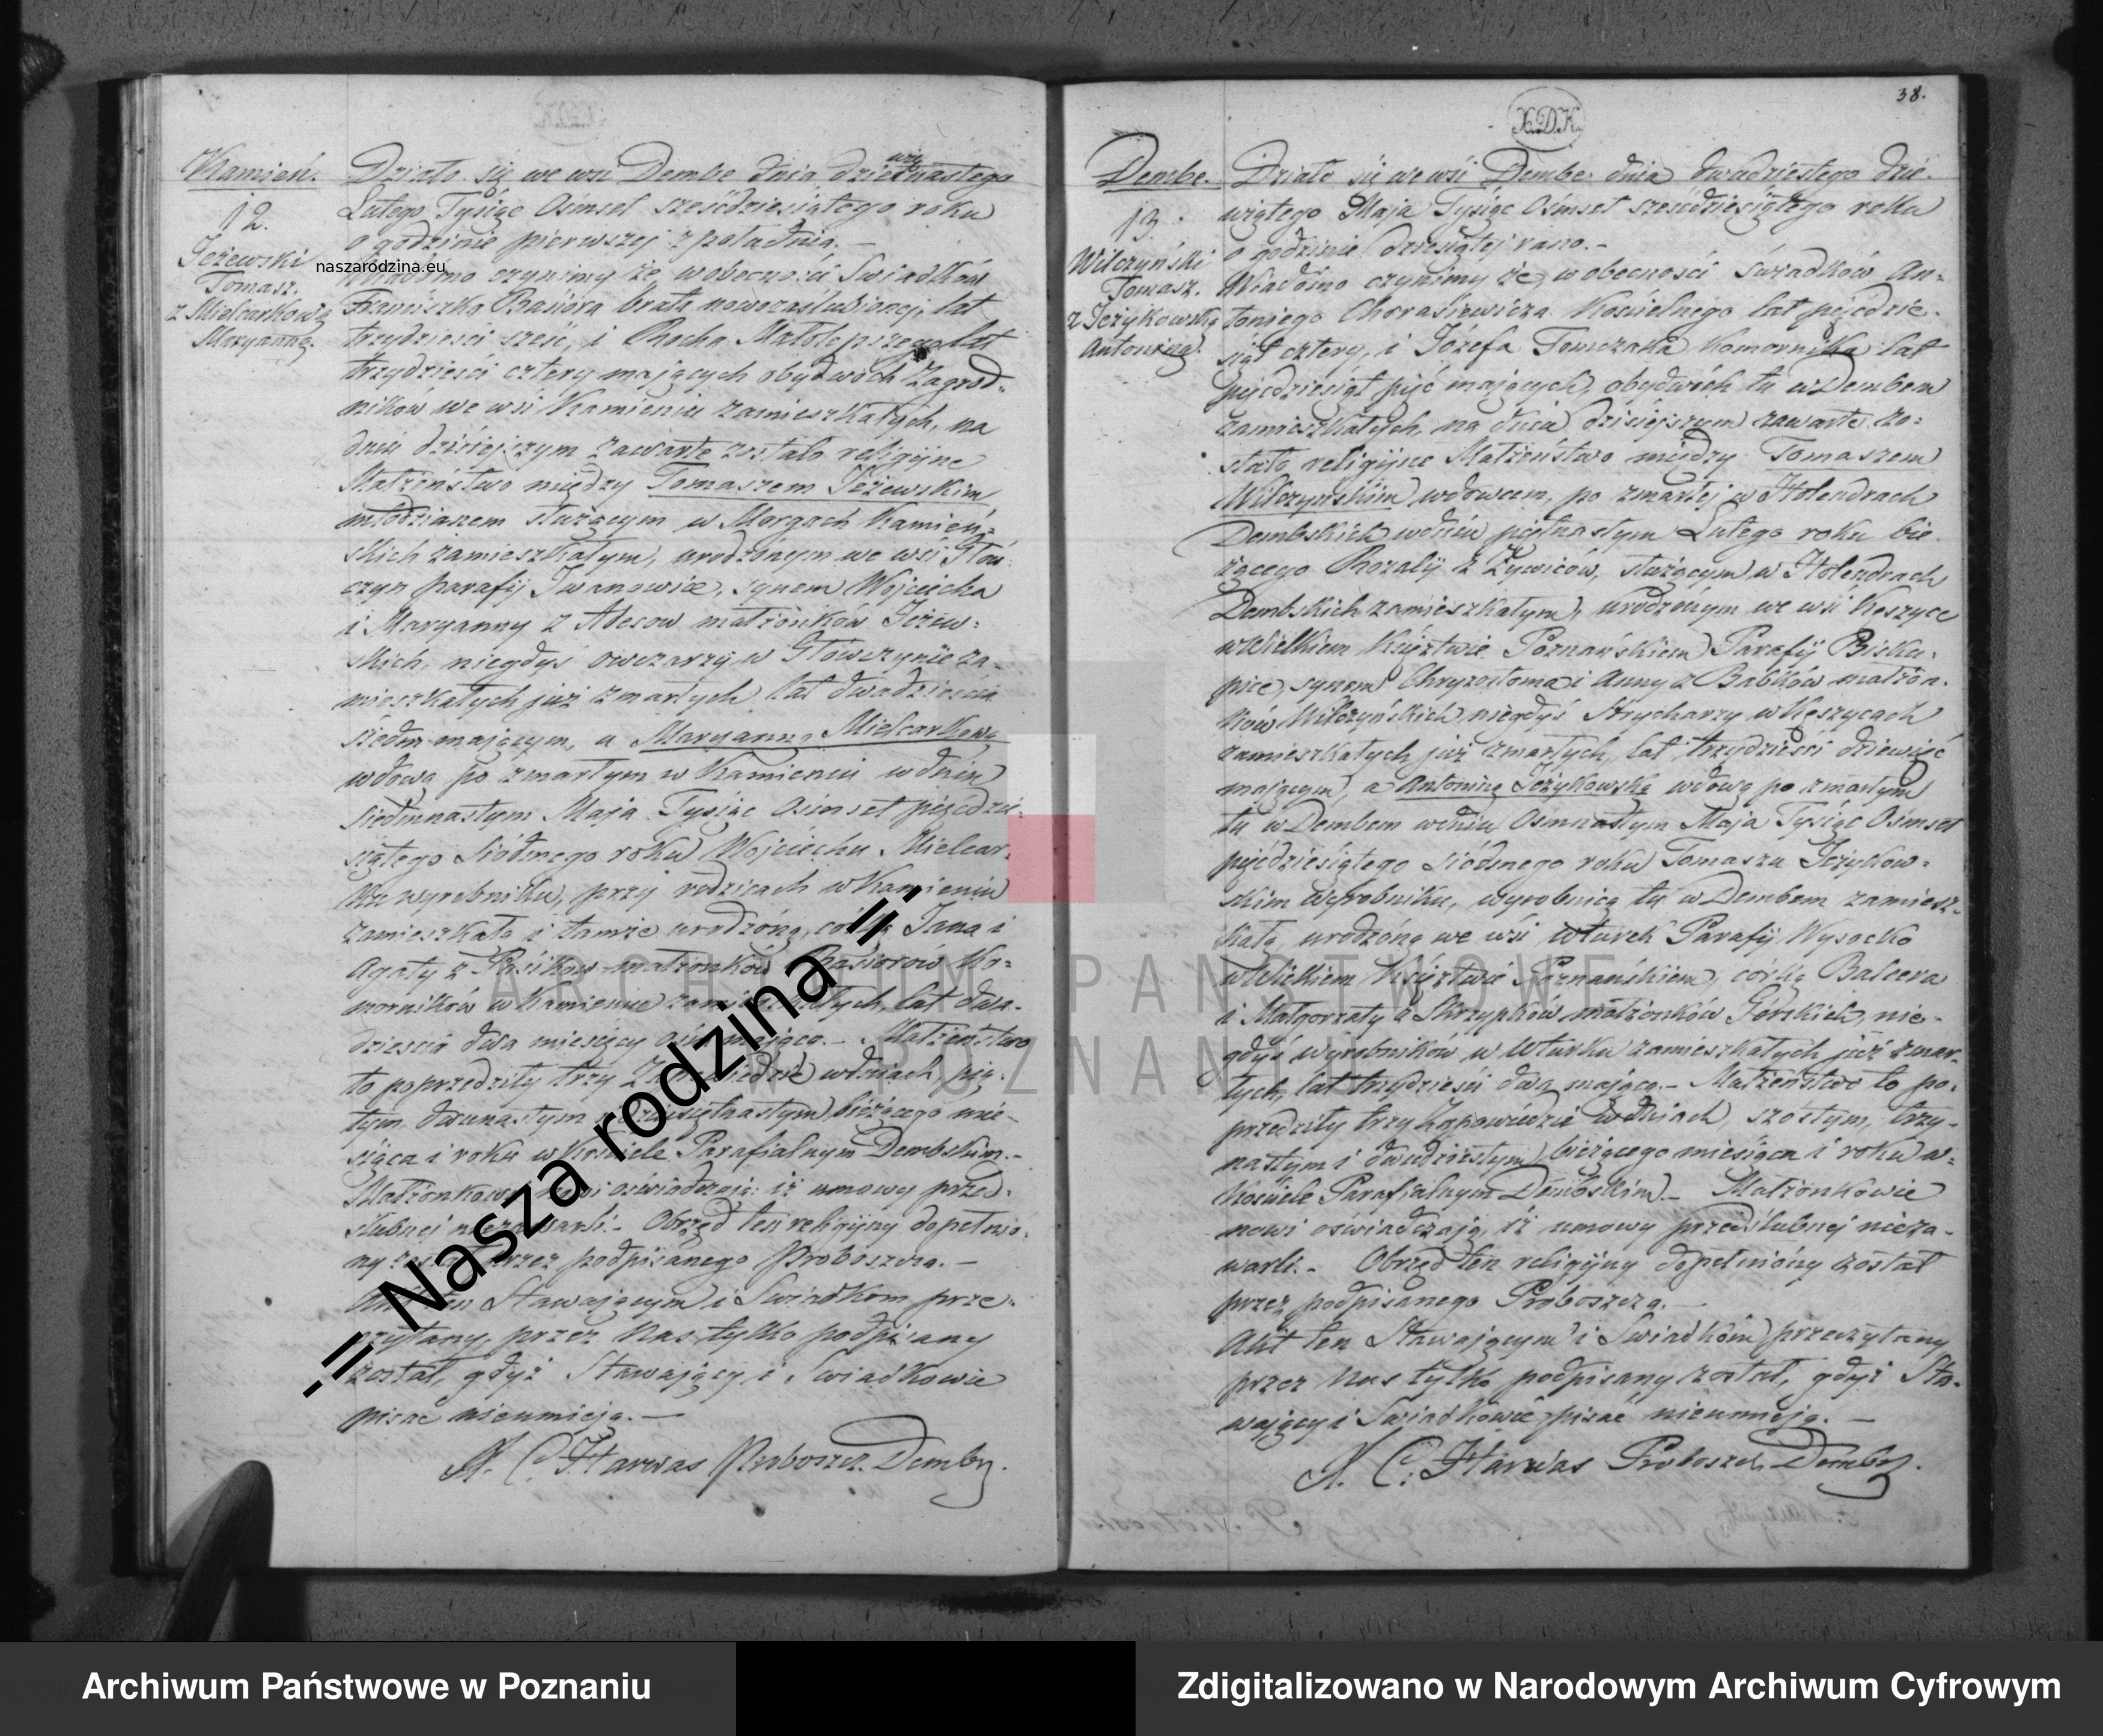 Kamień.
12.
Jeżewski
Tomasz.
z Mielcarkową
Maryanną.
naszarodzina.eu
Działo się we wsi Dembe dnia dziewiętnastego
Lutego Tysiąc Ośmset sześćdziesiątego roku
o godzinie pierwszej z południa. —
Wiadomo czynimy że w obecności Świadków
Franciszka Basiora brata nowozaślubionej, lat
trzydzieści sześć, i Rocha Małolepszego lat
trzydzieści cztery mających obydwóch Zagrod-
ników we wsi Kamieniu zamieszkałych, na
dniu dzisiejszym zawarte zostało religijne
Małżeństwo między Tomaszem Jeżewskim
młodzianem służącym w Morgach Kamień-
skich zamieszkałym, urodzonym we wsi Głów-
czyn parafij Iwanowice, synem Wojciecha
i Maryanny z małżonków Jeżew-
skich, niegdyś owczarzy w Główczynie za-
mieszkałych już zmarłych, lat dwadzieścia
siedm mającym, a Maryanną Mielcarkową
wdową po zmarłym w Kamieniu w dniu
siedmnastym Maja Tysiąc Ośmset pięćdzie-
siątego siódmego roku Wojciechu Mielcar-
ku wyrobniku, przy rodzicach w Kamieniu
zamieszkałą i tamże urodzoną, córką Jana i
Agaty z małżonków Basiorów Ko-
morników w Kamieniu zamieszkałych, lat dwa-
dzieścia dwa miesięcy ośm mającą. — Małżeństwo
to poprzedziły trzy Zapowiedzie w dniach pią-
tym dwunastym i dziewiętnastym bieżącego mie-
siąca i roku w Kościele Parafialnym Dembskim. —
Małżonkowie nowi oświadczają: iż umowy przed-
ślubnej niezawarli. — Obrzęd ten religijny dopełnio-
ny został przez podpisanego Proboszcza. —
Akt ten Stawającym i Świadkom prze-
czytany, przez Nas tylko podpisany
został, gdyż Stawający i Świadkowie
pisać nieumieją. —
X. C. Harwas Proboszcz Demby.
38.
X.D.K.
Dembe.
13.
Wilczyński
Tomasz.
z Jeżykowską
Antoniną.
Działo się we wsi Dembe dnia dwudziestego dzie-
wiątego Maja Tysiąc Ośmset sześćdziesiątego roku
o godzinie dziesiątej rano. —
Wiadomo czynimy że w obecności świadków An-
toniego Chorasiewicza Kościelnego lat pięćdzie-
siąt cztery, i Józefa Tomczaka komornika lat
pięćdziesiąt pięć mających, obydwóch tu w Dembem
zamieszkałych, na dniu dzisiejszym zawarte zo-
stało religijne Małżeństwo między Tomaszem
Wilczyńskim wdowcem, po zmarłej w Holendrach
Dembskich w dniu piętnastym Lutego roku bie-
żącego Rozalij z Żywiców, służącym w Holendrach
Dembskich zamieszkałym, urodzonym we wsi Keszyce
w Wielkiem Księztwie Poznańskiem Parafij Bisku-
pice, synem Chryzostoma i Anny z Babków małżon-
ków Wilczyńskich niegdyś Strycharzy w Keszycach
zamieszkałych już zmarłych, lat trzydzieści dziewięć
mającym, a Antoniną Jeżykowską wdową po zmarłym
tu w Dembem w dniu Ośmnastym Maja Tysiąc Ośmset
pięćdziesiątego siódmego roku Tomaszu Jeżykow-
skim wyrobniku, wyrobnicą tu w Dembem zamiesz-
kałą, urodzoną we wsi Wturek Parafij Wysocko
w Wielkiem Księztwie Poznańskiem, córką Balcera
i Małgorzaty z Skrzypków małżonków Górskich, nie-
gdyś wyrobników w Wturku zamieszkałych już zmar-
łych, lat trzydzieści dwa mającą. — Małżeństwo to po-
przedziły trzy Zapowiedzie w dniach, szóstym, trzy-
nastym i dwudziestym bieżącego miesiąca i roku w
Kościele Parafialnym Dembskim. — Małżonkowie
nowi oświadczają, iż umowy przedślubnej nieza-
warli. — Obrzęd ten religijny dopełniony został
przez podpisanego Proboszcza. —
Akt ten Stawającym i Świadkom przeczytany
przez Nas tylko podpisany został, gdyż Sta-
wający i Świadkowie pisać nieumieją. —
X. C. Harwas Proboszcz Demby.
ARCHIWUM PAŃSTWOWE
POZNANIU
-=| Nasza rodzina |=-
Archiwum Państwowe w Poznaniu
Zdigitalizowano w Narodowym Archiwum Cyfrowym